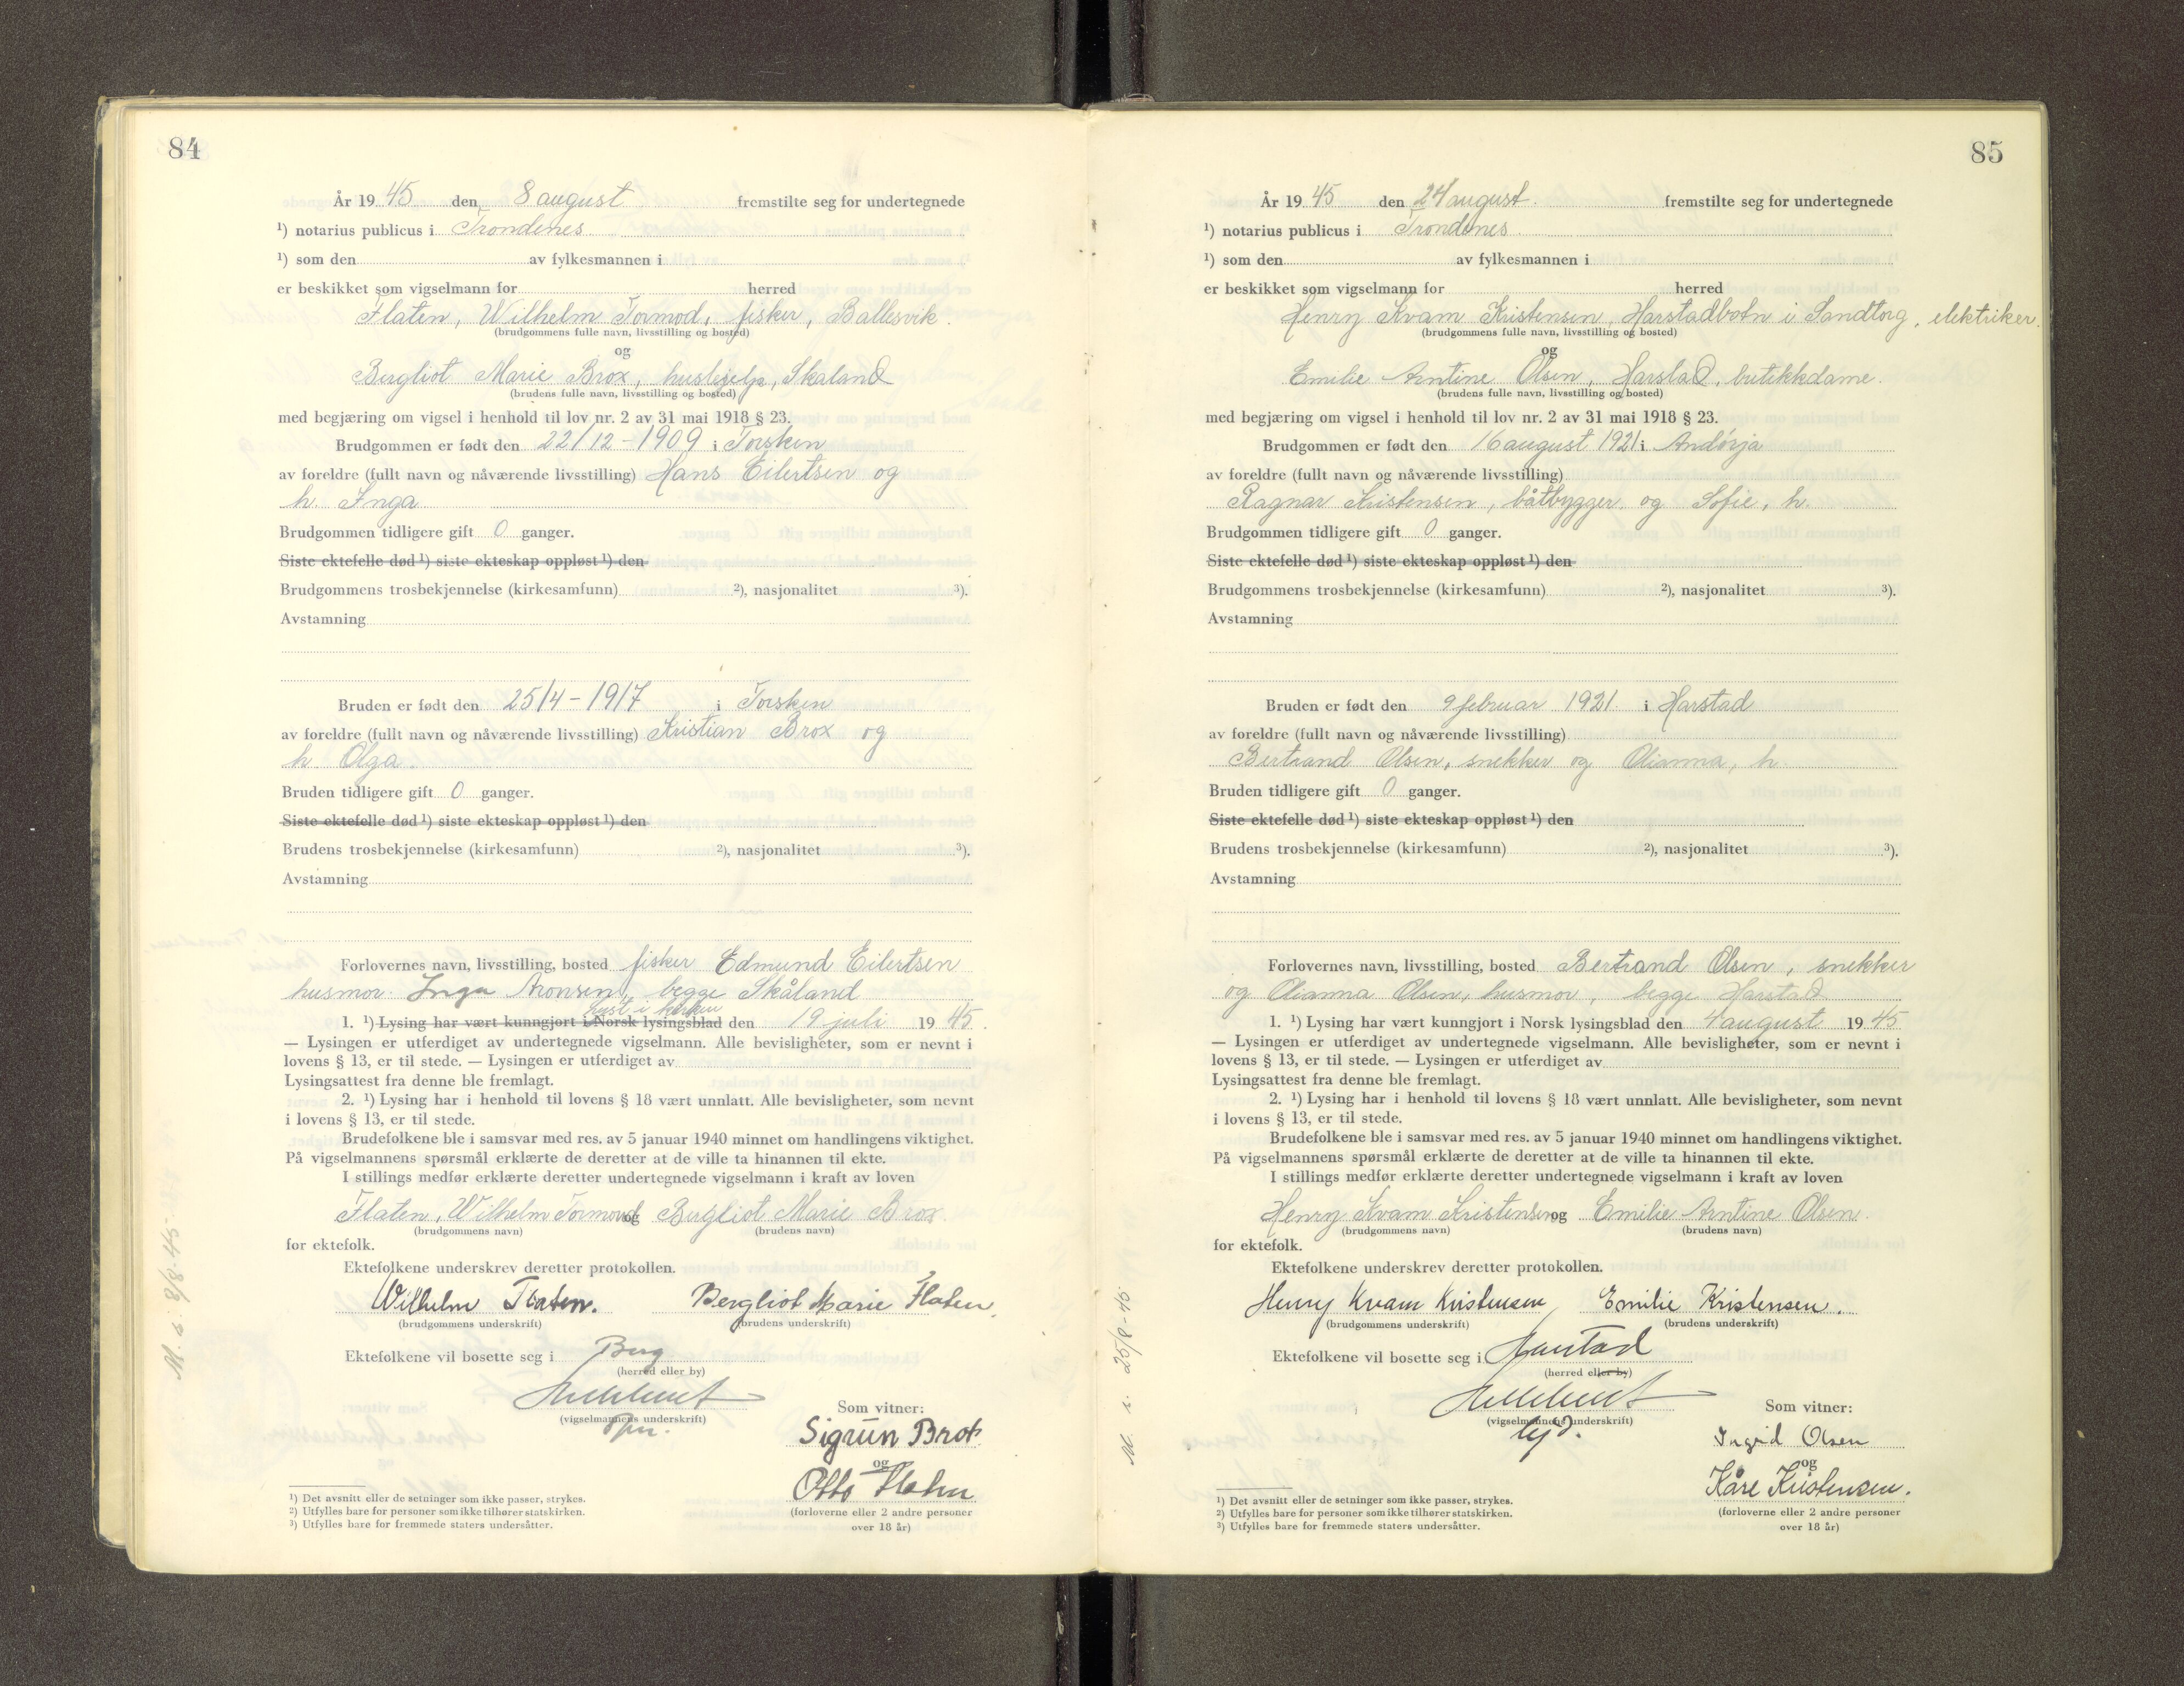 84
År 19 45 den 8 august fremstilte seg for undertegnede
¹) notarius publicus i Trondenes
¹) som den av fylkesmannen i
er beskikket som vigselmann for herred
Flaten, Wilhelm Tormod, fisker, Ballesvik.
(brudgommens fulle navn, livsstilling og bosted)
og
Bergliot Marie Brox, hushjelp, Skaland
(brudens fulle navn, livsstilling og bosted)
med begjæring om vigsel i henhold til lov nr. 2 av 31 mai 1918 § 23.
Brudgommen er født den 22/12-1909 i Torsken
av foreldre (fullt navn og nåværende livsstilling) Hans Eilertsen og
h. Inga
Brudgommen tidligere gift 0 ganger.
Siste ektefelle død ¹) siste ekteskap oppløst ¹) den
Brudgommens trosbekjennelse (kirkesamfunn) ²), nasjonalitet ³).
Avstamning
Bruden er født den 25/4-1917 i Torsken
av foreldre (fullt navn og nåværende livsstilling) Kristian Brox og
h. Olga
Bruden tidligere gift 0 ganger.
Siste ektefelle død ¹) siste ekteskap oppløst ¹) den
Brudens trosbekjennelse (kirkesamfunn) ²), nasjonalitet ³).
Avstamning
Forlovernes navn, livsstilling, bosted fisker Edmund Eilertsen
husmor Inga Aronsen, begge Skåland
lyst i kirken
1. ¹) Lysing har vært kunngjort i Norsk lysingsblad den 19 juli 19 45.
— Lysingen er utferdiget av undertegnede vigselmann. Alle bevisligheter, som er nevnt i
lovens § 13, er til stede. — Lysingen er utferdiget av
Lysingsattest fra denne ble fremlagt.
2. ¹) Lysing har i henhold til lovens § 18 vært unnlatt. Alle bevisligheter, som nevnt
i lovens § 13, er til stede.
Brudefolkene ble i samsvar med res. av 5 januar 1940 minnet om handlingens viktighet.
På vigselmannens spørsmål erklærte de deretter at de ville ta hinannen til ekte.
I stillings medfør erklærte deretter undertegnede vigselmann i kraft av loven
Flaten, Wilhelm Tormod og Bergliot Marie Brox
(brudgommens navn) (brudens navn)
for ektefolk.
Ektefolkene underskrev deretter protokollen.
Wilhelm Flaten. Bergliot Marie Flaten,
(brudgommens underskrift) (brudens underskrift)
Ektefolkene vil bosette seg i Berg
(herred eller by)
(vigselmannens underskrift)
Som vitner:
Sigrun Brox
og
Otto Flaten
(forloverne eller 2 andre personer
over 18 år)
¹) Det avsnitt eller de setninger som ikke passer, strykes.
²) Utfylles bare for personer som ikke tilhører statskirken.
³) Utfylles bare for fremmede staters undersåtter.
M. s. 9/8-45
85
År 19 45 den 24 august. fremstilte seg for undertegnede
¹) notarius publicus i Trondenes.
¹) som den av fylkesmannen i
er beskikket som vigselmann for herred
Henry Kvam Kristensen, Harstadbotn i Sandtorg, elektriker.
(brudgommens fulle navn, livsstilling og bosted)
og
Emilie Arntine Olsen, Harstad, butikkdame.
(brudens fulle navn, livsstilling og bosted)
med begjæring om vigsel i henhold til lov nr. 2 av 31 mai 1918 § 23.
Brudgommen er født den 16 august 1921 i Andørja
av foreldre (fullt navn og nåværende livsstilling)
Ragnar Kristensen, båtbygger, og Sofie, h.
Brudgommen tidligere gift 0 ganger.
Siste ektefelle død ¹) siste ekteskap oppløst ¹) den
Brudgommens trosbekjennelse (kirkesamfunn) ²), nasjonalitet ³).
Avstamning
Bruden er født den 9 februar 1921. i Harstad
av foreldre (fullt navn og nåværende livsstilling)
Bertrand Olsen, snekker og Olianna, h.
Bruden tidligere gift 0 ganger.
Siste ektefelle død ¹) siste ekteskap oppløst ¹) den
Brudens trosbekjennelse (kirkesamfunn) ²), nasjonalitet ³).
Avstamning
Forlovernes navn, livsstilling, bosted Bertrand Olsen, snekker
og Olianna Olsen, husmor, begge Harstad
1. ¹) Lysing har vært kunngjort i Norsk lysingsblad den 4 august 19 45
— Lysingen er utferdiget av undertegnede vigselmann. Alle bevisligheter, som er nevnt i
lovens § 13, er til stede. — Lysingen er utferdiget av
Lysingsattest fra denne ble fremlagt.
2. ¹) Lysing har i henhold til lovens § 18 vært unnlatt. Alle bevisligheter, som nevnt
i lovens § 13, er til stede.
Brudefolkene ble i samsvar med res. av 5 januar 1940 minnet om handlingens viktighet.
På vigselmannens spørsmål erklærte de deretter at de ville ta hinannen til ekte.
I stillings medfør erklærte deretter undertegnede vigselmann i kraft av loven
Henry Kvam Kristensen og Emilie Arntine Olsen.
(brudgommens navn) (brudens navn)
for ektefolk.
Ektefolkene underskrev deretter protokollen.
Henry Kvam Kristensen, Emilie Kristensen.
(brudgommens underskrift) (brudens underskrift)
Ektefolkene vil bosette seg i Harstad
(herred eller by)
(vigselmannens underskrift)
Som vitner:
Ingrid Olsen
og
Kåre Kristensen.
(forloverne eller 2 andre personer
over 18 år)
¹) Det avsnitt eller de setninger som ikke passer, strykes.
²) Utfylles bare for personer som ikke tilhører statskirken.
³) Utfylles bare for fremmede staters undersåtter.
M. s. 25/8-45